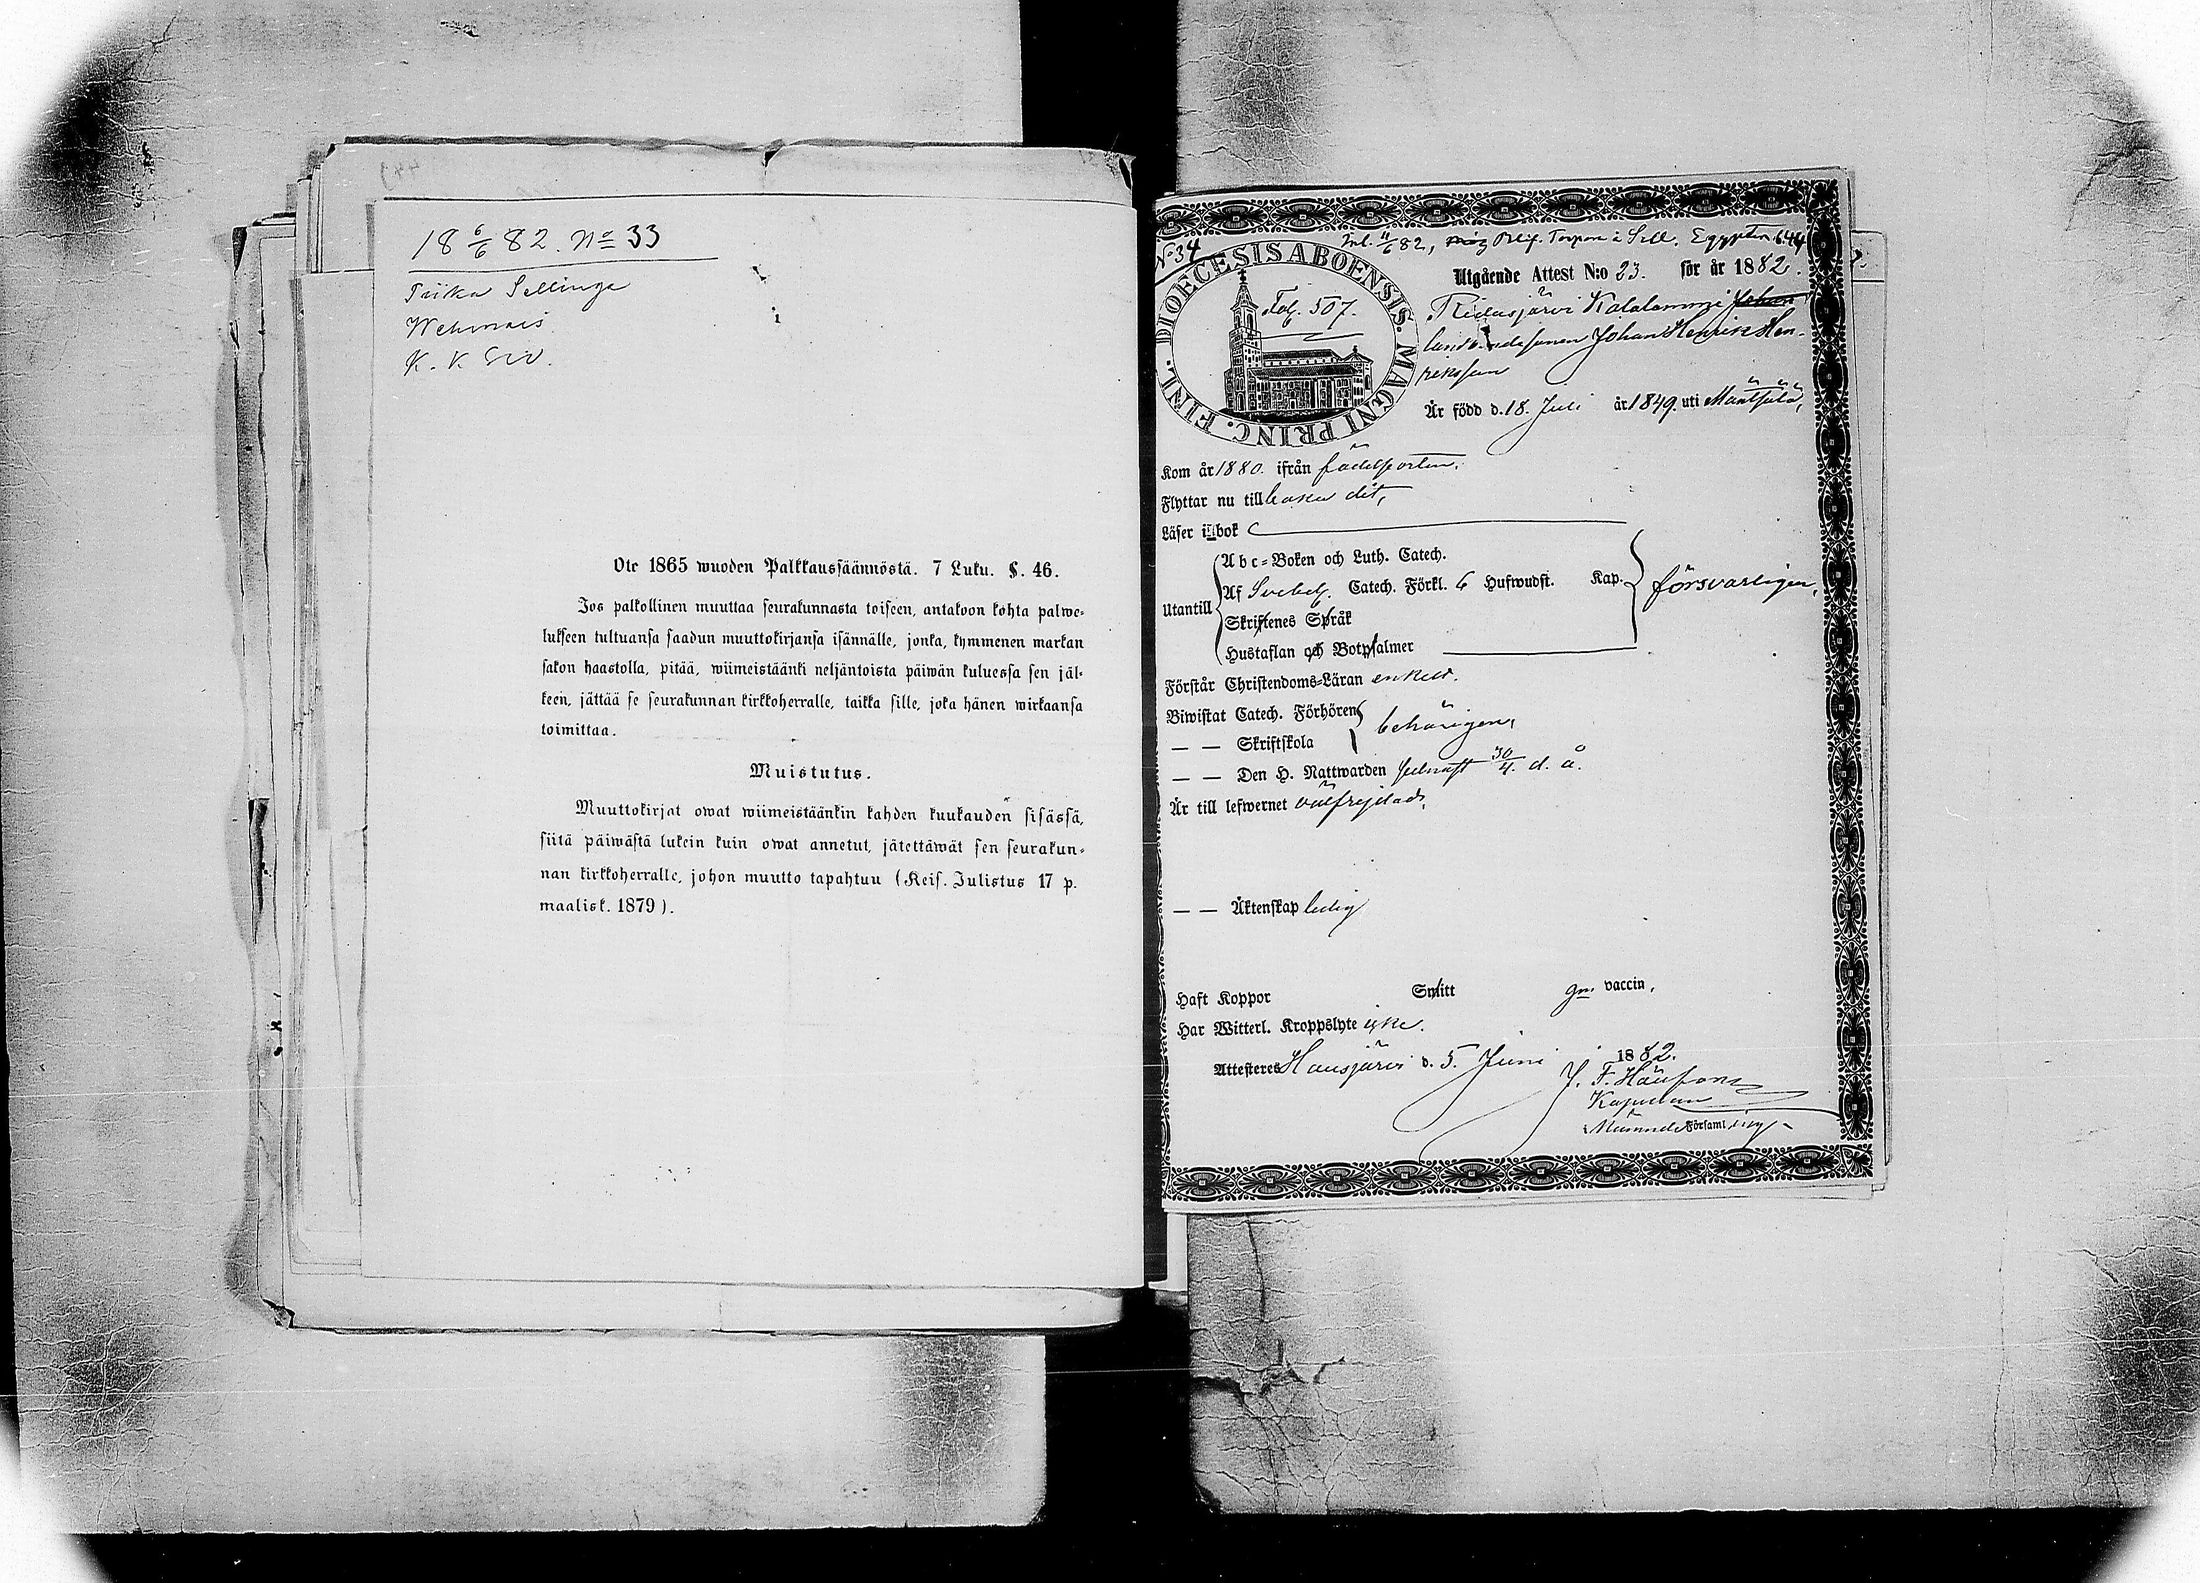 18 6/6 82. No 33
Wehmais
K. K.
Ote 1865 wuoden Palkkaussäännöstä. 7 Luku. §. 46.
Jos palkollinen muuttaa seurakunnasta toiseen, antakoon kohta palwe-
lukseen tultuansa saadun muuttokirjansa isännälle, jonka, kymmenen markan
sakon haastolla, pitää, wiimeistäänki neljäntoista päiwän kuluessa sen jäl-
keen, jättää se seurakunnan kirkkoherralle, taikka sille, joka hänen wirkaansa
toimittaa.
Muistutus.
Muuttokirjat owat wiimeistäänkin kahden kuukauden sisässä,
siitä päiwästä lukein kuin owat annetut, jätettäwät sen seurakun-
nan kirkkoherralle, johon muutto tapahtuu (Keis. Julistus 17 p.
maalisk. 1879).
No 34
Inl. 11/6 82, Egypten 644
DIOECESIS ABOENSIS. MAGNI PRINC. FINL.
Fol. 507.
Utgående Attest N:o 23. för år 1882.
Ridasjärvi Kalalammi Johan
landbondesonen Johan Henrik Hen-
riksson
Är född d. 18. Juli år 1849. uti Mäntsälä,
Kom år 1880. ifrån födelseorten.
Flyttar nu tillbaka dit,
Läser i bok
Utantill
Abc-Boken och Luth. Catech.
Af Svebel. Catech. Förkl. 6 Hufwudst. Kap.
försvarligen,
Skriftenes Språk
Hustaflan och Botpsalmer
Förstår Christendoms-Läran enkelt.
Biwistat Catech. Förhören
behörigen,
— — Skriftskola
— — Den H. Nattwarden senast 30/4. d. å.
Är till lefwernet välfrejdad,
— — Äktenskap ledig
Haft Koppor Smitt gm. vaccin,
Har Witterl. Kroppslyte icke.
Attesteres Hausjärvi d. 5. Juni 1882.
J. F.
Kapellan
i Nämnde Församling